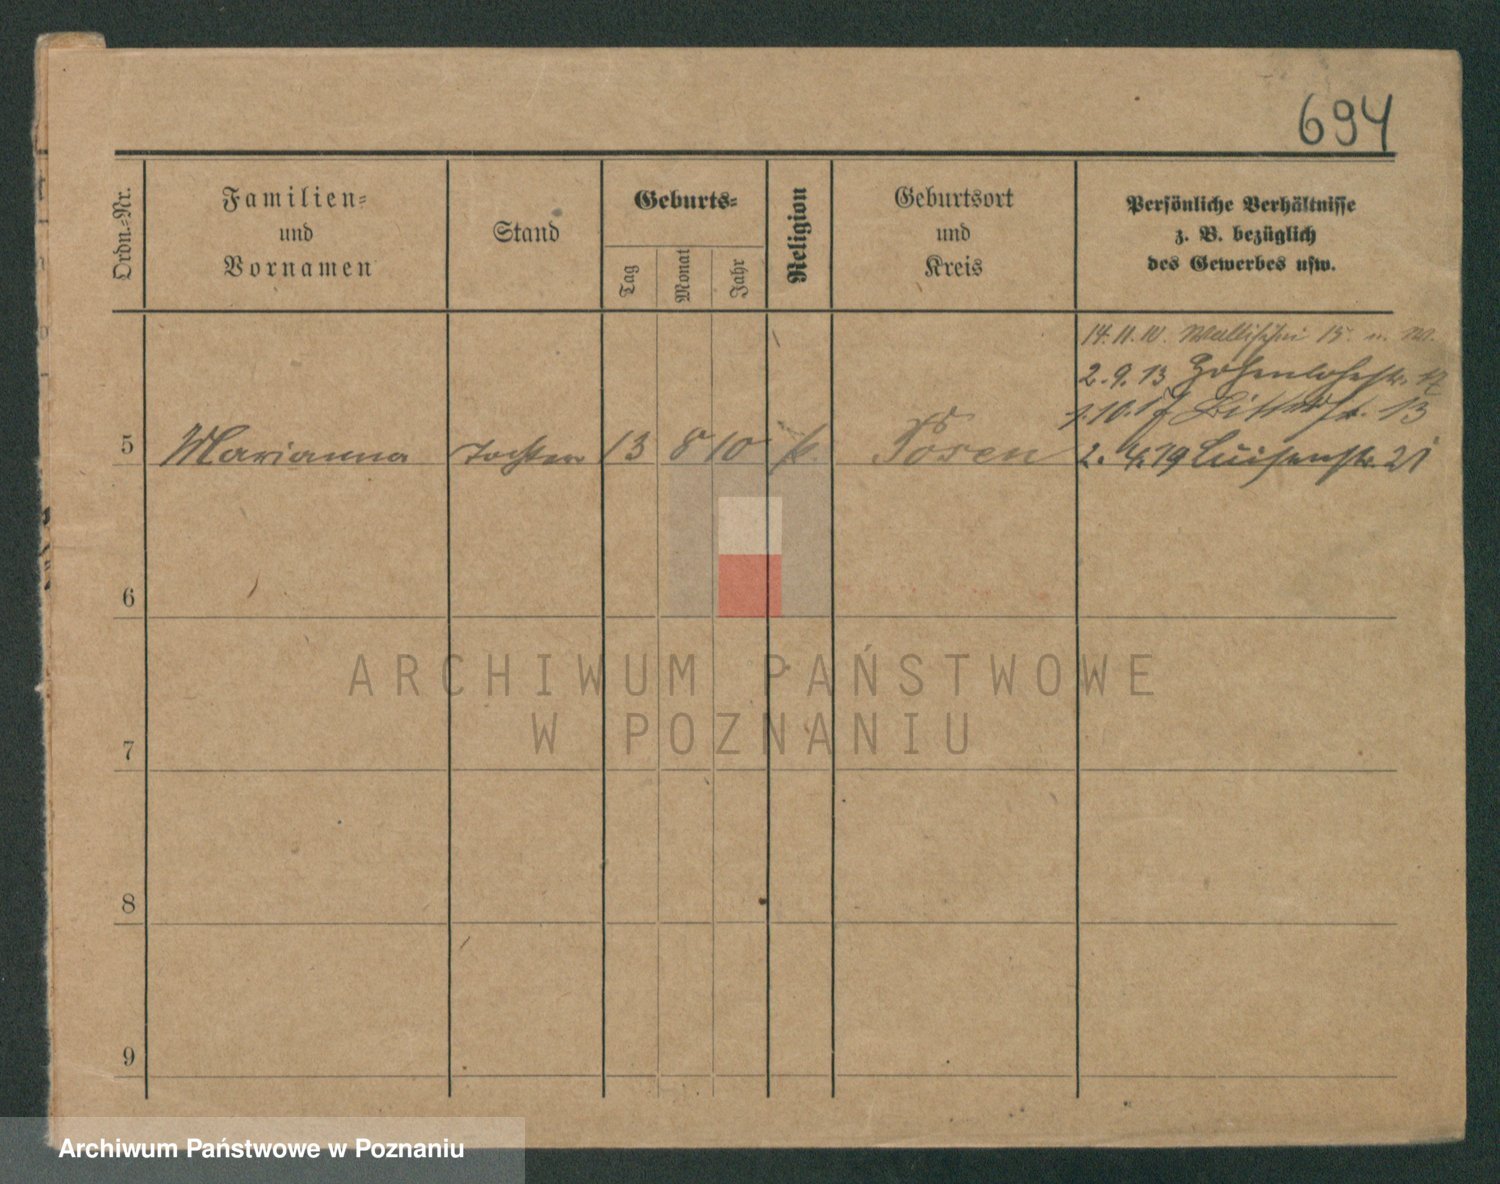 694
Ordn.-Nr.
Familien-
und
Vornamen
Stand
Geburts-
Tag
Monat
Jahr
Religion
Geburtsort
und
Kreis
Persönliche Verhältnisse
z. B. bezüglich
des Gewerbes usw.
14.11.10. Wallischei 15
2.9.13 Hohenlohestr. 17
Ritterstr. 13
5 Marianna Tochter 13 8 10 k. Posen 2.4.19 Luisenstr. 21
6
7
8
9
ARCHIWUM PAŃSTWOWE
W POZNANIU
Archiwum Państwowe w Poznaniu